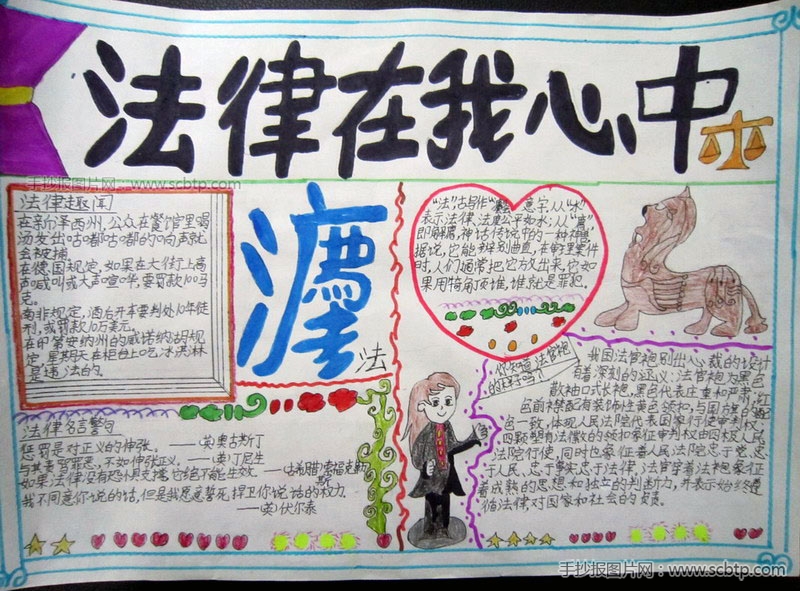 法律在我心中
手抄报图片网：www.scbtp.com
法律趣闻
在新泽西州，公众在餐馆里喝
汤发出咕嘟咕嘟的响声就
会被捕。
在德国规定，如果在大街上高
声喊叫或大声喧哗要罚款100马
克。
南非规定，酒后开车要判处10年徒
刑，或罚款10万美元。
在印第安纳州的威诺纳湖规
定，星期天在柜台上吃冰淇淋
是违法的。
灋
法
"法"古写作"灋"
表示法律、法度公平如水；从"廌"
即解廌，神话传说中的一种神兽，
据说，它能辨别曲直，在审理案件
时，人们通常把它放出来，它如
果用犄角顶谁，谁就是罪犯。
法律名言警句
惩罚是对正义的伸张。——(英)奥古斯丁
与其责骂罪恶，不如伸张正义。——(英)丁尼生
如果法律没有恐惧支撑，它绝不能生效。——(古希腊)索福克勒
斯
我不同意你说的话，但是我愿意誓死捍卫你说话的权力。
——(英)伏尔泰
你知道法官袍
的样子吗？
我国法官袍别出心裁的设计
有着深刻的涵义：法官袍为黑色
散袖口式长袍，黑色代表庄重和严肃；红
色前襟配有装饰性黄色领扣，与国旗的
色一致，体现人民法院代表国家行使审判权；
四颗塑有法徽的领扣象征审判权由四级人民
法院行使，同时也象征着人民法院忠于党、忠
于人民、忠于事实、忠于法律；法官穿着法袍，象征
着成熟的思想和独立的判断力，并表示始终遵
循法律，对国家和社会的负责。
手抄报图片网：www.scbtp.com